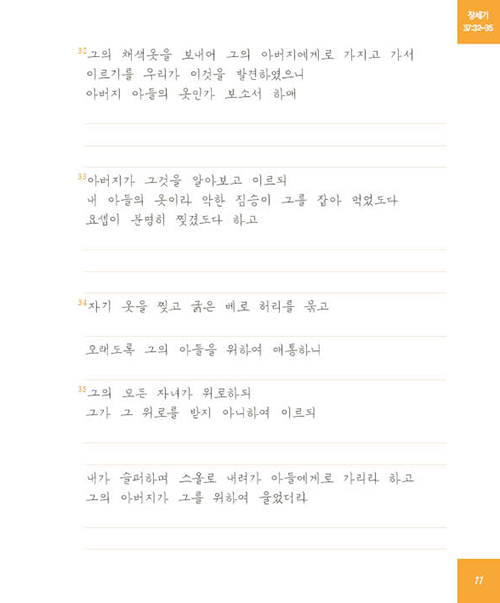 창세기
37:32-35
32그의 채색옷을 보내어 그의 아버지에게로 가지고 가서
이르기를 우리가 이것을 발견하였으니
아버지 아들의 옷인가 보소서 하매
33아버지가 그것을 알아보고 이르되
내 아들의 옷이라 악한 짐승이 그를 잡아 먹었도다
요셉이 분명히 찢겼도다 하고
34자기 옷을 찢고 굵은 베로 허리를 묶고
오래도록 그의 아들을 위하여 애통하니
35그의 모든 자녀가 위로하되
그가 그 위로를 받지 아니하여 이르되
내가 슬퍼하며 스올로 내려가 아들에게로 가리라 하고
그의 아버지가 그를 위하여 울었더라
11